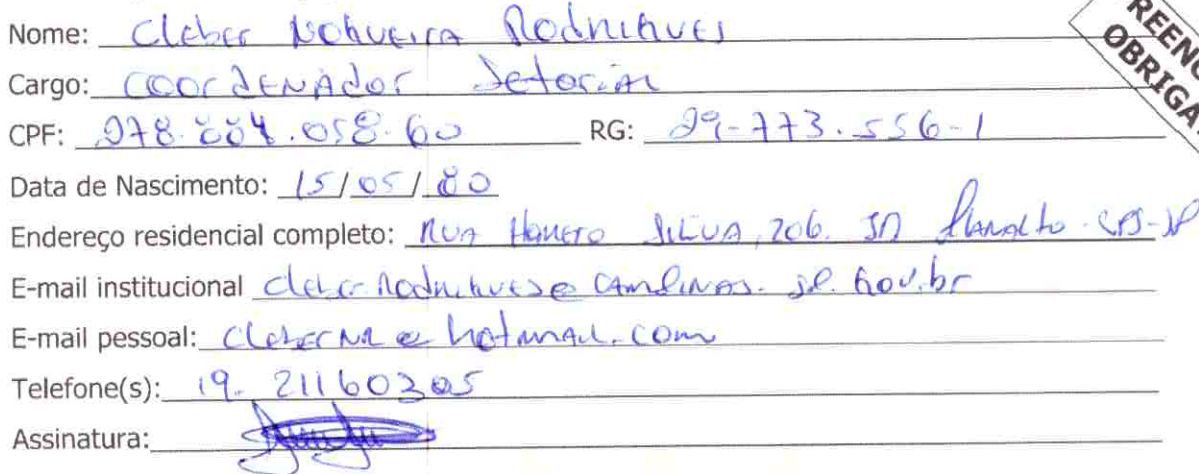 REENC
OBRIGA
Nome: Cleber Nogueira Rodrigues
Cargo: Coordenador Setorial
CPF: 278.884.058.60 RG: 29-773.556-1
Data de Nascimento: 15/05/80
Endereço residencial completo: Rua Homero Silva, 206. JD Planalto - CPS-SP
E-mail institucional cleber.rodrigues@campinas.sp.gov.br
E-mail pessoal: clebernr@hotmail.com
Telefone(s): 19. 21160305
Assinatura: